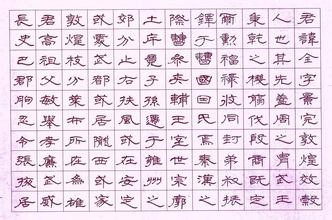 君諱全字景完敦煌效穀
人也其先蓋周之胄武王
秉乾之機翦伐殷商既定
爾勳福祿攸同封弟叔振
鐸于曹國因氏焉秦漢之
際曹參夾輔王室世宗廓
土斥竟子孫遷于雍州之
郊分止右扶風或在安定
或處武都或居隴西或家
敦煌枝分葉布所在為雄
君高祖父敏舉孝廉武威
長史巴郡朐忍令張掖居